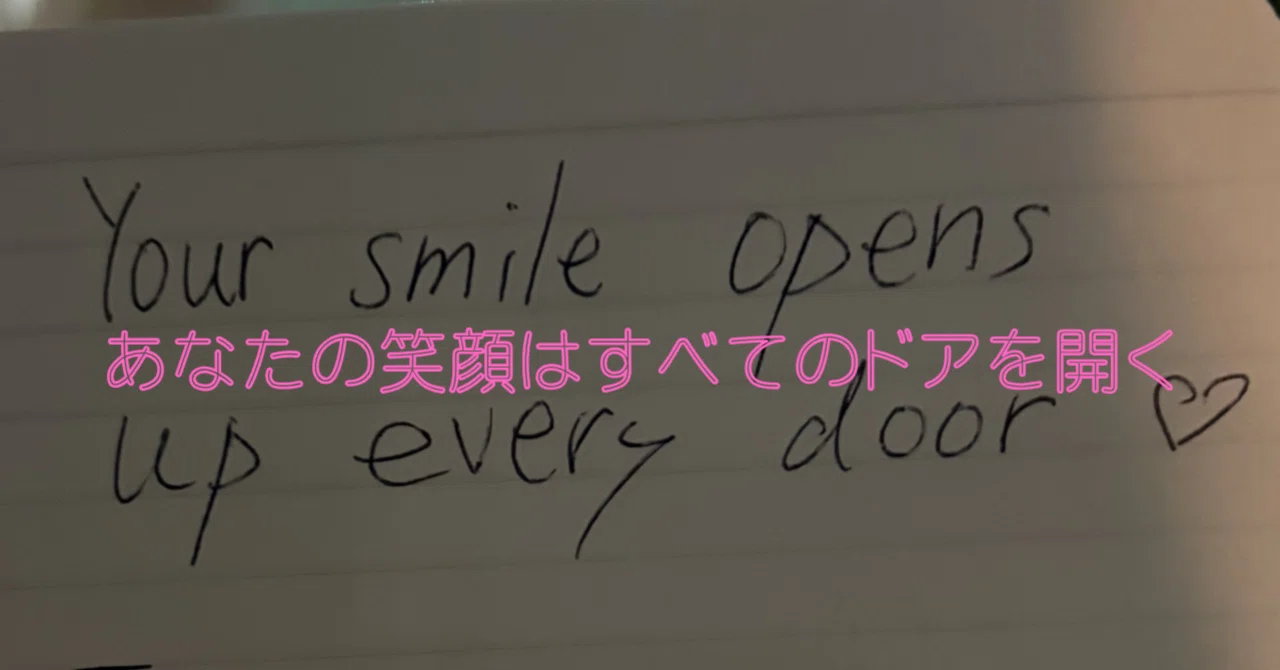 Your smile opens
あなたの笑顔はすべてのドアを開く
up every door ♡